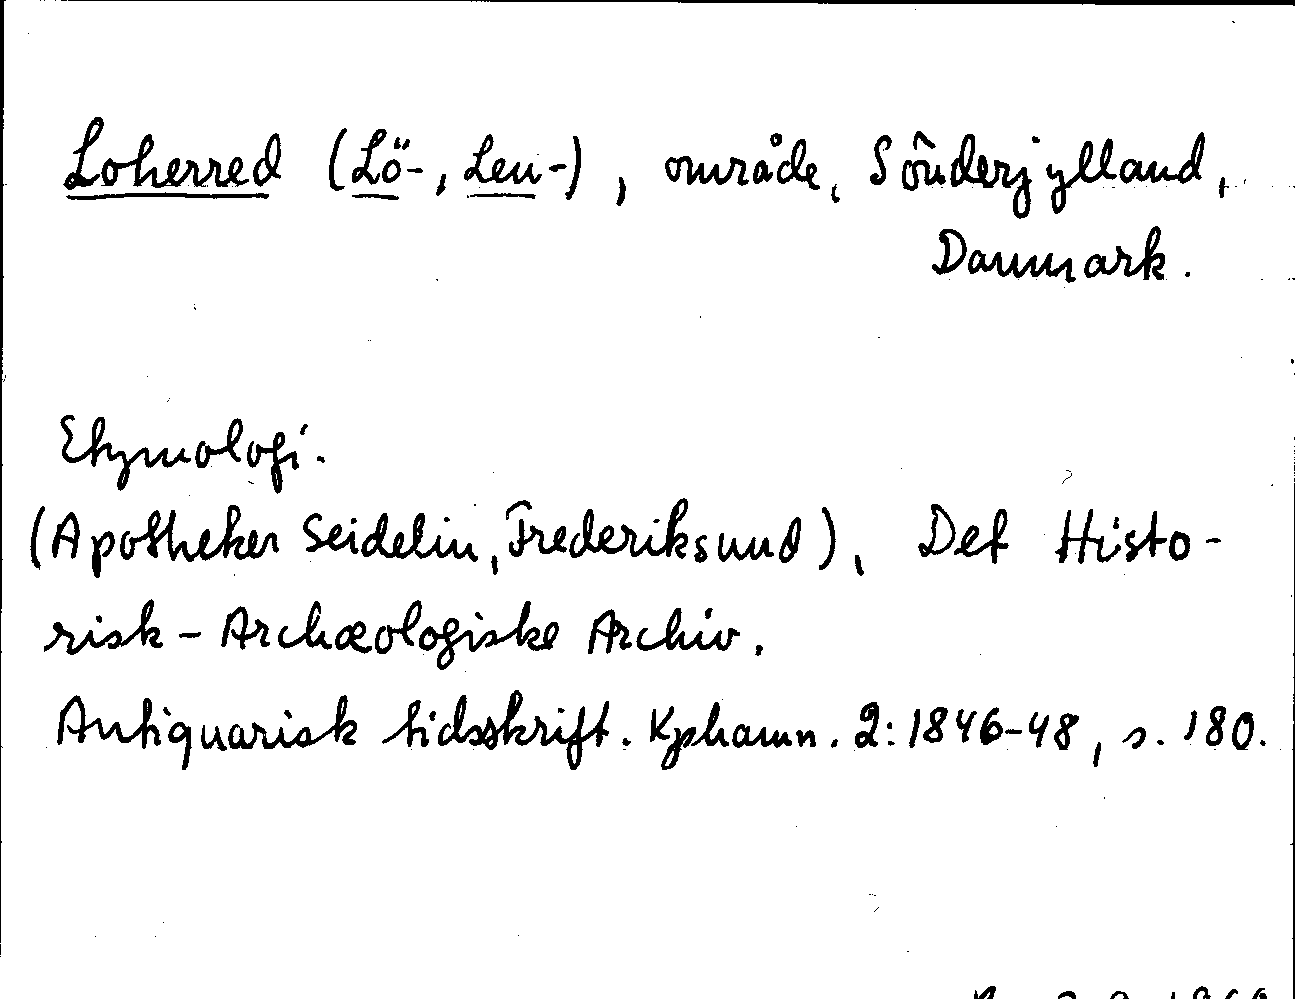 Loherred (Lö-, Leu-), område, Sönderjylland,
Danmark.
Etymologi.
(Apotheker Seidelin, Frederiksund), Det Histo-
risk-Archæologiske Archiv.
Antiquarisk tidsskrift. Kphamn. 2: 1846-48, s. 180.